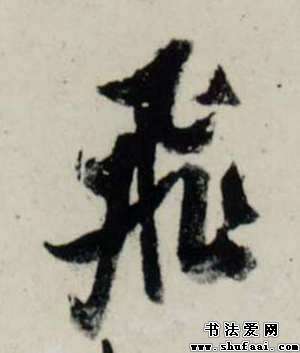 飛
书法爱网
www.shufaai.com